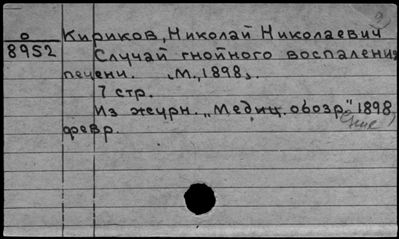 о
8952
Кириков, Николай Николаевич
Случай гнойного воспаления
печени. М., 1898.
7 стр.
Из журн. „Медиц. обозр." 1898
февр.